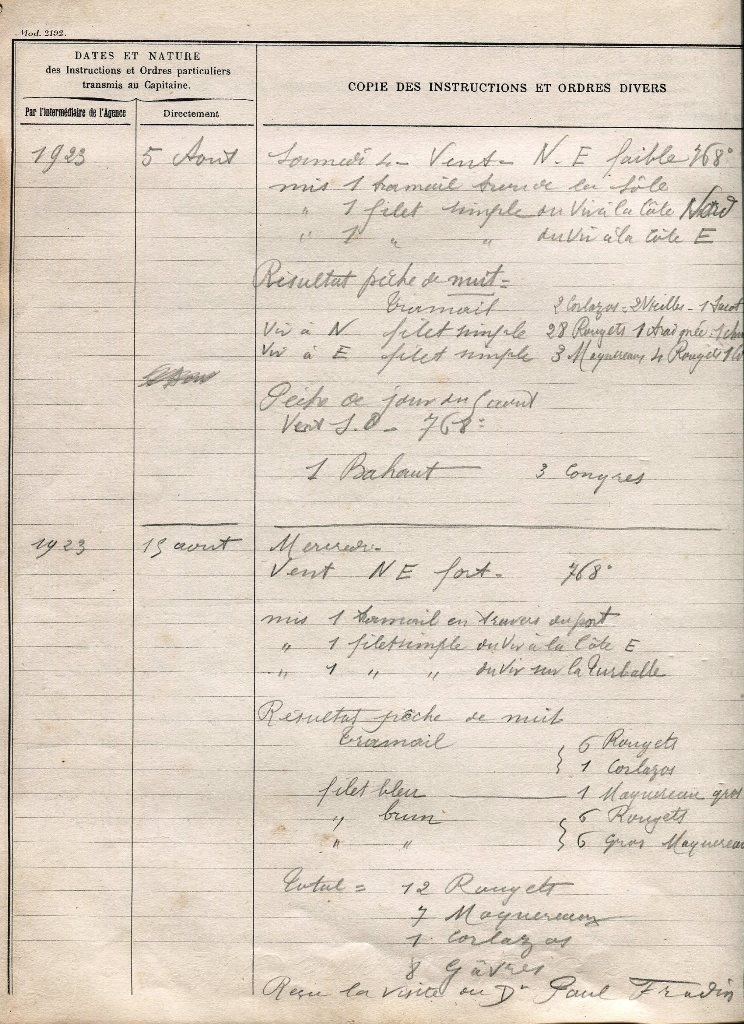 Mod. 2192.
DATES ET NATURE
des Instructions et Ordres particuliers
transmis au Capitaine.
Par l'intermédiaire de l'Agence
Directement
COPIE DES INSTRUCTIONS ET ORDRES DIVERS
1923 5 Aout Samedi 4 - Vent - N. E faible 768°
mis 1 tramail de la Sôle
" 1 filet simple du Vivi à la Côte Nord
" 1 " " du Vir à la Côte E
Résultat pêche de nuit =
Tramail 2 Corlazos - 2 Vieilles - 1
Vir à N filet simple 28 Rougets 1 1
Vir à E filet simple 3 Maquereaux 4 Rougets 1
Pêche de jour du 5 aout
Vent S. O - 768°
1 Bahaut 3 Congres
1923 15 aout Mercredi -
Vent N E fort - 768°
mis 1 tramail en travers du port
" 1 filet simple du Vir à la Côte E
" 1 " " du Vir sur la Turballe
Résultat pêche de nuit
Tramail 6 Rougets
1 Corlazos
filet bleu 1 Maquereau gros
" brun 6 Rougets
" " 6 gros Maquereau
Total = 12 Rougets
7 Maquereaux
1 Corlazos
8 Gâvres
Reçu la visite du Dr Paul Fradin